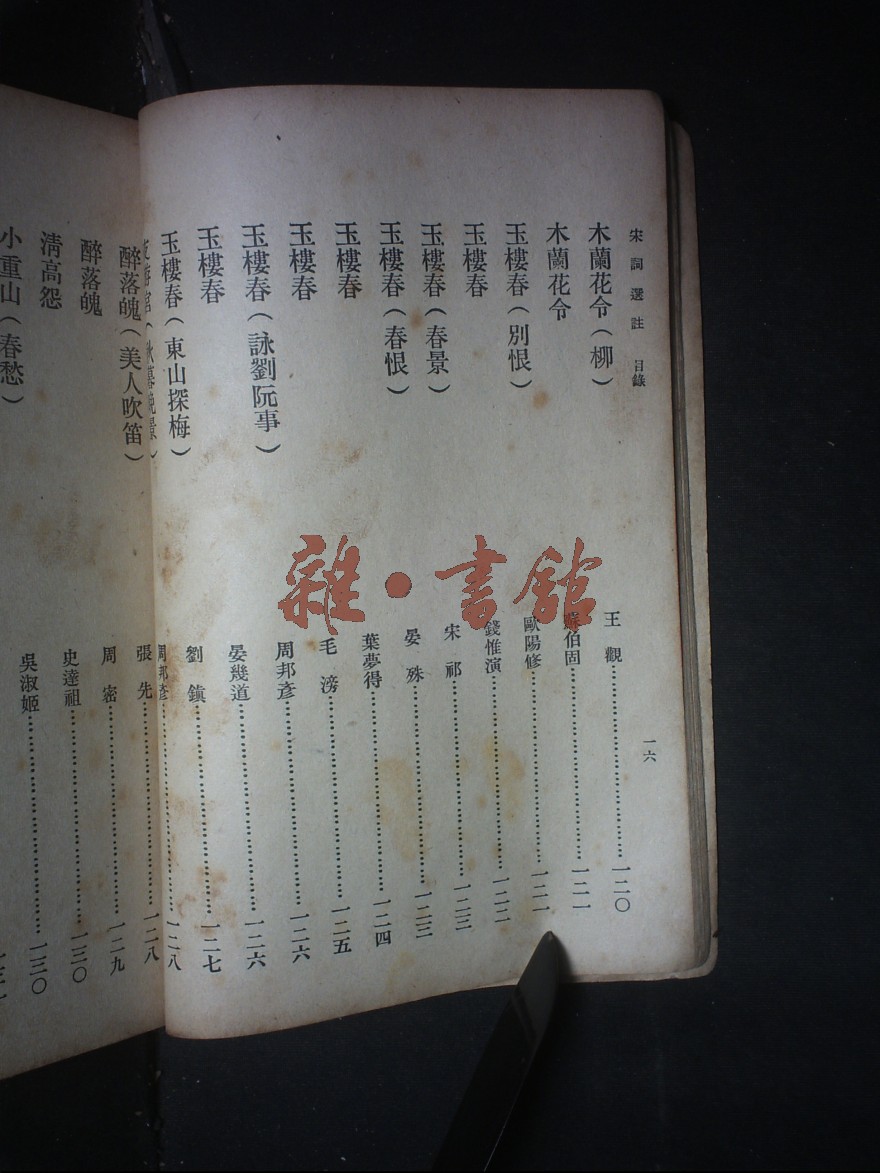 宋詞選註 目錄 一六
木蘭花令(柳) 王觀……一二〇
木蘭花令 蘇伯固……一二一
玉樓春(別恨) 歐陽修……一二一
玉樓春 錢惟演……一二二
玉樓春(春景) 宋祁……一二三
玉樓春(春恨) 晏殊……一二三
玉樓春 葉夢得……一二四
玉樓春 毛滂……一二五
玉樓春(詠劉阮事) 周邦彥……一二六
玉樓春 晏幾道……一二六
玉樓春(東山探梅) 劉鎮……一二七
(秋暮晚景) 周邦彥……一二八
醉落魄(美人吹笛) 張先……一二八
醉落魄 周密……一二九
清高怨 史達祖……一三〇
小重山(春愁) 吳淑姬……一三〇
雜·書館